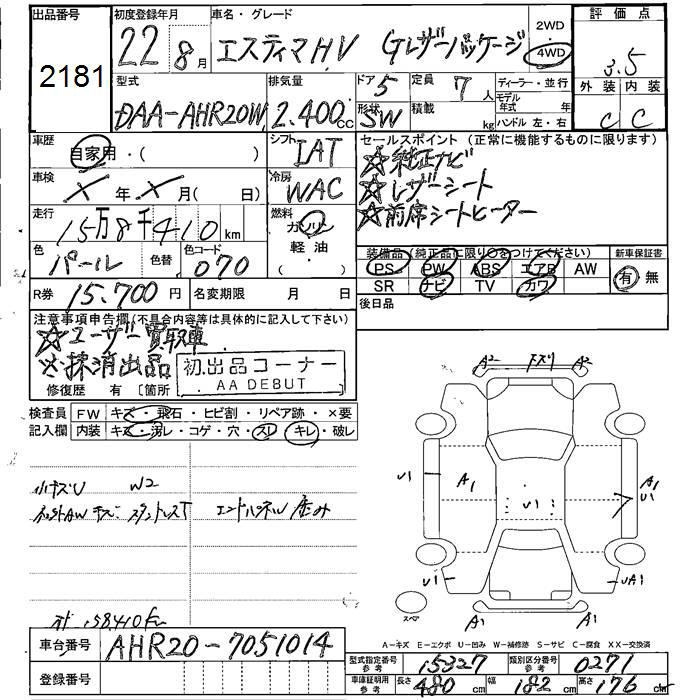 出品番号 初度登録年月 車名・グレード 2WD 評価点
2181 22 8月 エスティマHV Gレザーパッケージ 4WD 3.5
型式 排気量 ドア 5 定員 7人 ディーラー・並行 外装 内装
DAA-AHR20W 2.400cc 形状 SW 積載 kg モデル年式 年 ハンドル 左・右 C C
車歴 自家用・( ) シフト IAT セールスポイント (正常に機能するものに限ります)
☆純正ナビ
車検 X年 X月(日) 冷房 WAC ☆レザーシート
走行 15万8千410km 燃料 ガソリン ☆前席シートヒーター
色 パール 色替 色コード 070 軽油 ・( )
装備品 (純正品に限り○をつけてください) 新車保証書
PS PW ABS エアB AW 有 無
SR ナビ TV カワ
R券 15.700円 名変期限 月 日 後日品
注意事項申告欄(不具合内容等は具体的に記入して下さい)
☆ユーザー買取車
※抹消出品 初出品コーナー
AA DEBUT
修復歴 有 〔箇所
検査員 FW キズ・飛石・ヒビ割・リペア跡・×要
記入欄 内装 キズ・汚レ・コゲ・穴・スレ・キレ・破レ
A2 下スリ A2
U1 A1 U1 A1 U1
小キズU W2
エンドパネルW 凹み
U1 UA1
A1 A1
スペア
A-キズ E-エクボ U-凹み W-補修跡 S-サビ C-腐食 XX-交換済
車台番号 AHR20-7051014
登録番号
型式指定番号 参考 15327 類別区分番号 参考 0271
車庫証明用 参考 長さ 480cm 幅 182cm 高さ 176cm